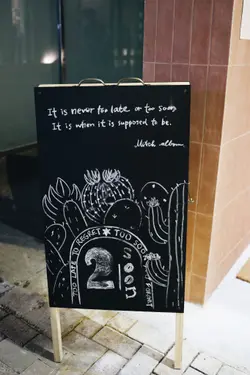 It is never too late or too soon
It is when it is supposed to be.
Mitch albom
TOO LATE TO REGRET * TOO SOON
2
SOON